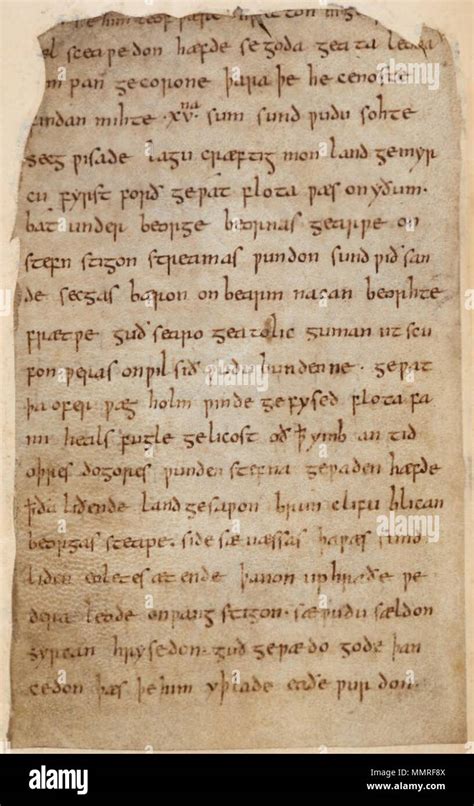 him leof ƿære hƿetton
sceaƿedon hæfde se goda geata leoda
pan gecorone þara þe he cenoste
findan mihte · XVna sum sund ƿudu sohte
secg ƿisade lagu cræftig mon land gemyr
cu fyrst forð geƿat flota ƿæs on yðum·
bat under beorge beornas gearƿe on
stefn stigon streamas ƿundon sund ƿið san
de secgas bæron on bearm nacan beorhte
frætƿe guð searo geatolic guman ut scu
fon ƿeras on ƿil sið ƿudu bundenne · geƿat
þa ofer ƿæg holm ƿinde gefysed flota fa
mi heals fugle gelicost oð ꝥ ymb an tid
oþres dogores ƿunden stefna geƿaden hæfde
ꝥ ða liðende land gesaƿon brim clifu blican
beorgas steape · side sæ næssas þa ƿæs sund
liden eoletes æt ende þanon up hraðe ƿe
dera leode on ƿang stigon · sæ ƿudu sældon
syrcan hrysedon · guð geƿædo gode þan
cedon þæs þe him yþ lade eaðe ƿurdon ·
alamy
alamy
alamy
alamy
Image ID: MMRF8X
www.alamy.com